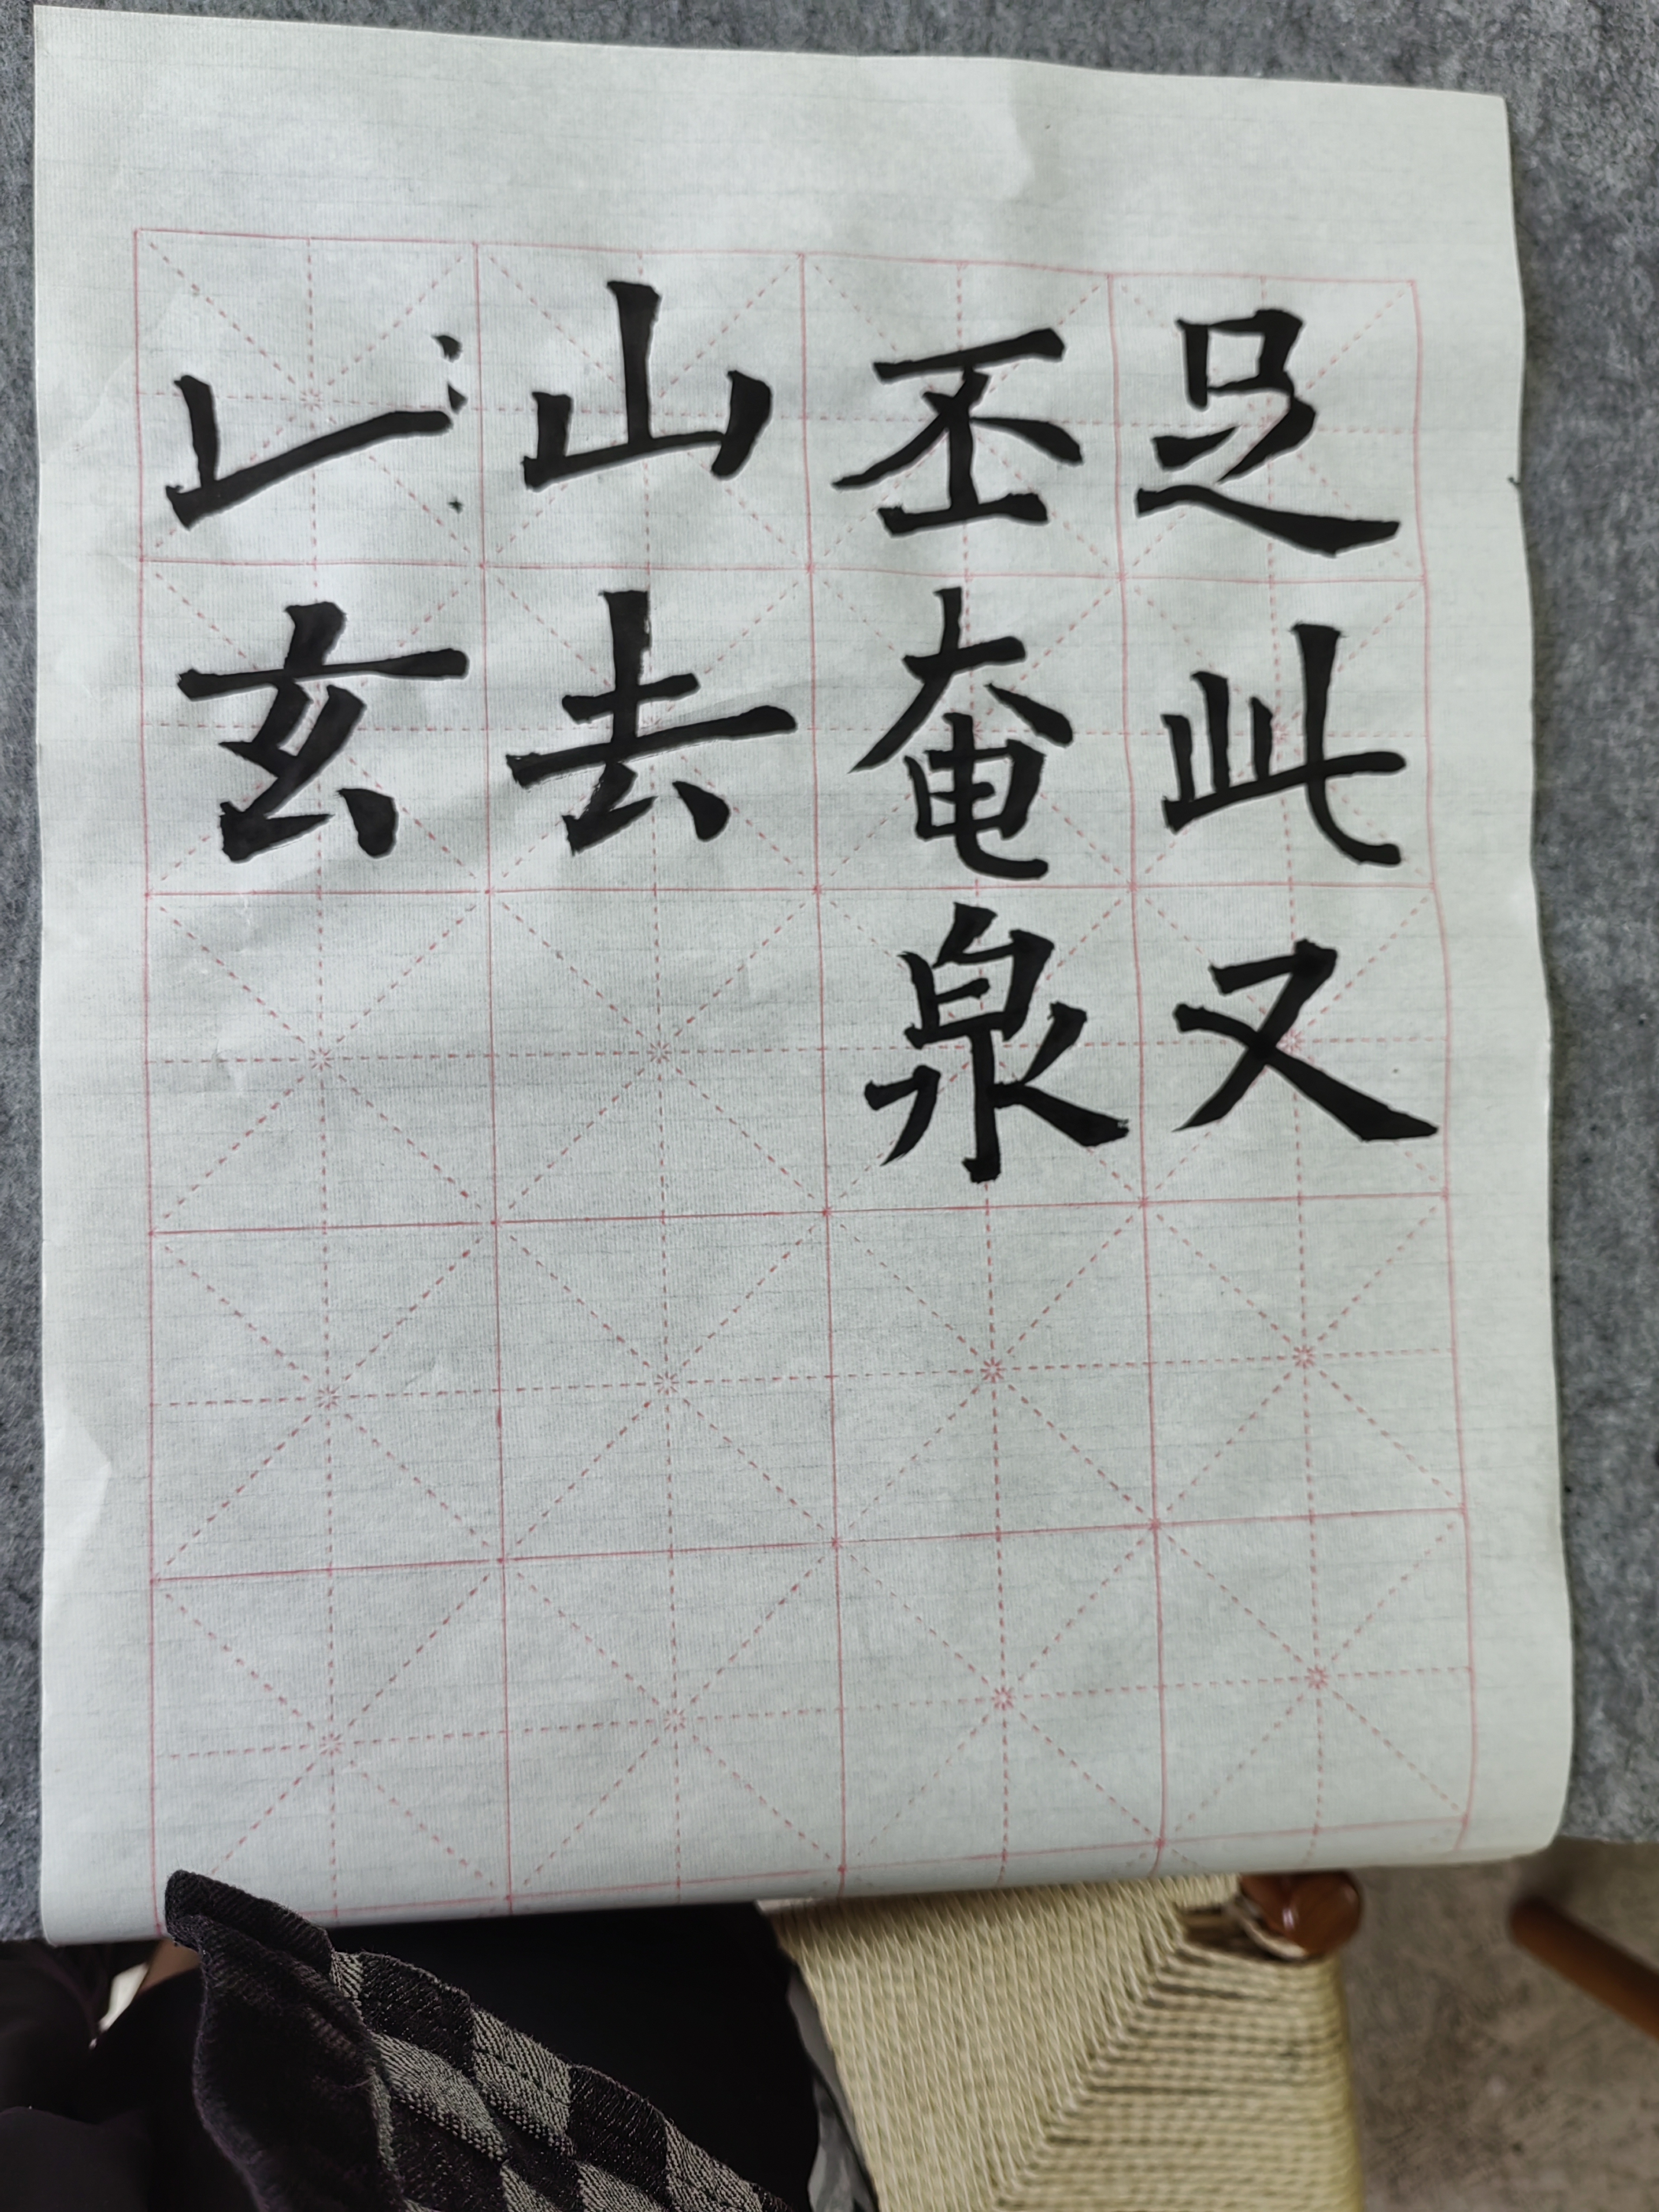 足此又
丕奄泉
山去
玄